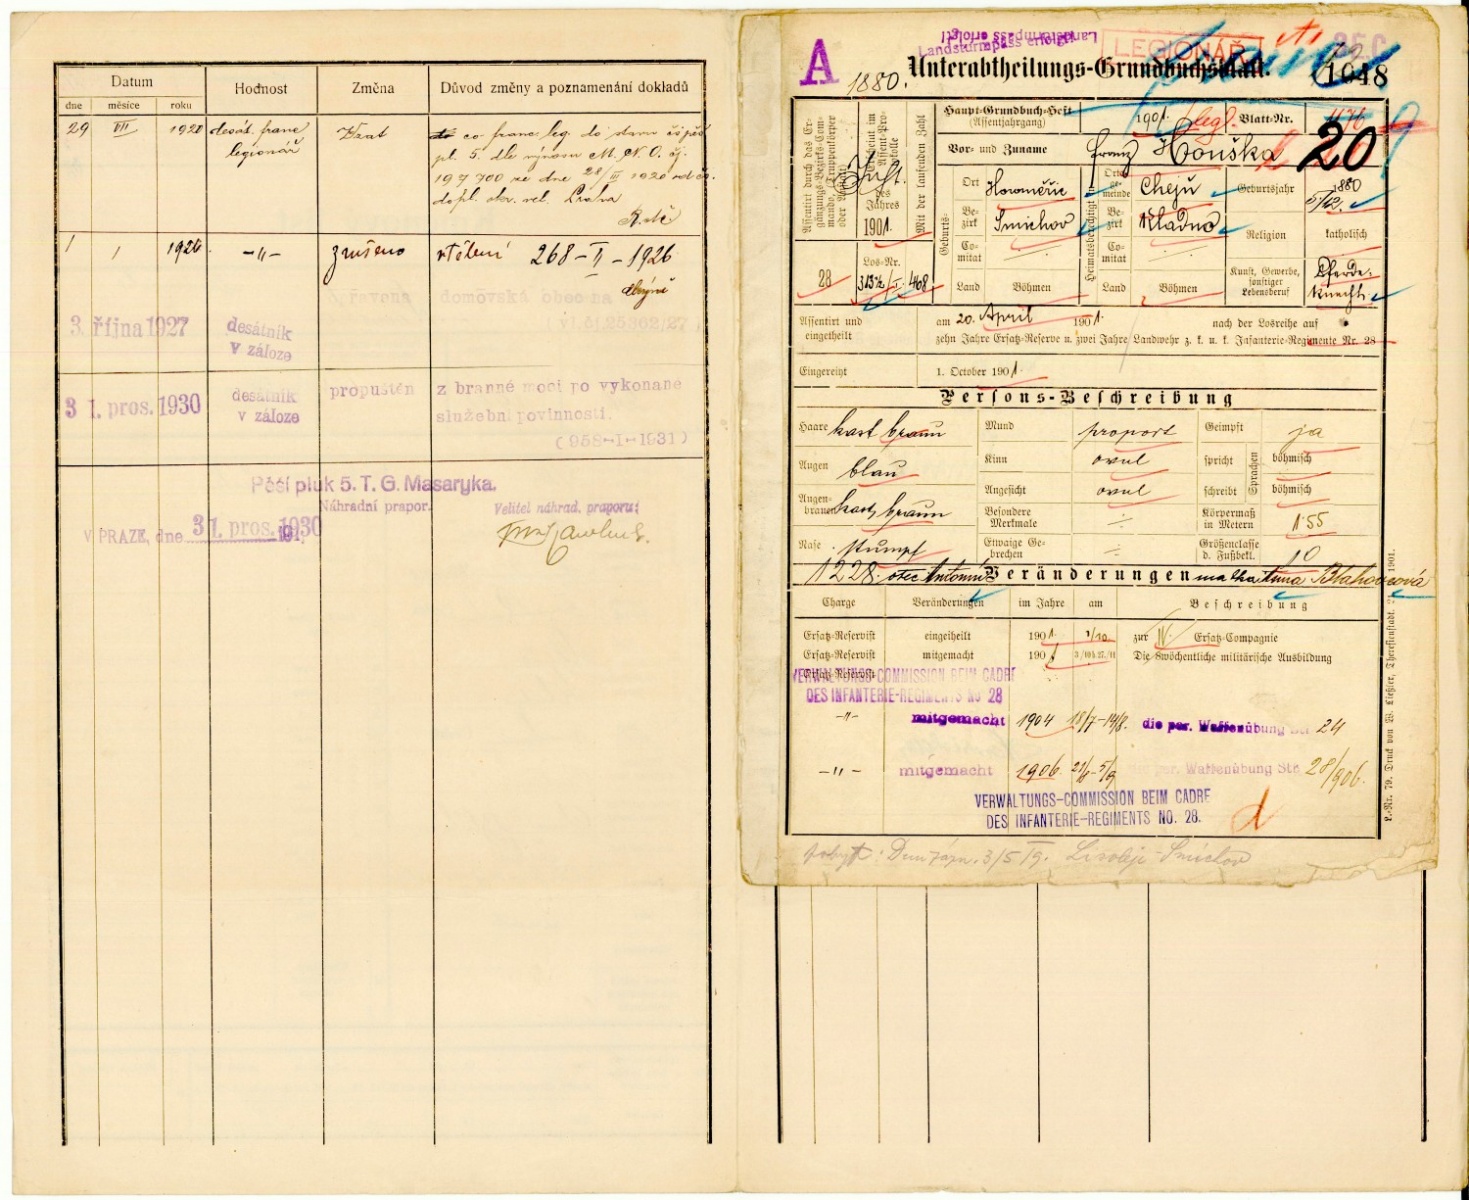 Datum
Hodnost
Změna
Důvod změny a poznamenání dokladů
dne
měsíce
roku
29 VII 1920 desát. franc. legionář
Vzat
co franc. leg. do stavu čs. pěš.
pl. 5. dle výnosu M. N. O. čj.
197700 ze dne 28/III 1920
dopl. okr. vel. Praha
1 1 1926 -"-
zrušeno
vtělení 268-II-1926
opravena domovská obec na
(v)čj.25362/27)
3. října 1927
desátník
v záloze
3 1. pros. 1930
desátník
v záloze
propuštěn
z branné moci po vykonané
služební povinnosti.
(958-I-1931)
Pěší pluk 5. T. G. Masaryka.
Náhradní prapor.
Velitel náhrad. praporu:
V PRAZE, dne 3 1. pros. 1930
A
Landsturmpass erfolgt!
Landsturmpass erfolgt!
LEGIONÁŘ
1880.
Unterabtheilungs-Grundbuchsblatt.
1048
Haupt-Grundbuch-Heft
(Assentjahrgang)
1901.
legi.
Blatt-Nr.
1176
20
Vor- und Zuname
Franz Houška
Assentirt durch das Ergänzungs-Bezirks-Commando, (Truppenkörper oder Anstalt)
28
Erscheint im Assent-Protokolle des Jahres
1901.
Mit der laufenden Zahl
Los-Nr.
468
Geburts-
Ort
Horoměřic
Bezirk
Smichov
Comitat
Land
Böhmen
Heimatsberechtigt in
Ortsgemeinde
Chejn
Bezirk
Kladno
Comitat
Land
Böhmen
Geburtsjahr
1880
5/12.
Religion
katholisch
Kunst, Gewerbe,
sonstiger
Lebensberuf
Pferde-
knecht.
Assentirt und
eingetheilt
am 20. April 1901.
nach der Losreihe auf
zehn Jahre Ersatz-Reserve u. zwei Jahre Landwehr z. k. u. k. Infanterie-Regimente Nr. 28
Eingereiht
1. October 1901.
Persons-Beschreibung
Haare
kast braun
Mund
proport
Geimpft
ja
Augen
blau
Kinn
oval
Sprachen
spricht
böhmisch
Augenbrauen
kast, braun
Angesicht
oval
schreibt
böhmisch
Besondere
Merkmale
Körpermaß
in Metern
1·55
Nase
stumpf
Etwaige Gebrechen
Größenclasse
d. Fußbekl.
10
1228. otec Antonín
Veränderungen
matka Anna Blahovcová
Charge
Veränderungen
im Jahre
am
Beschreibung
Ersatz-Reservist
eingetheilt
1901.
1/10.
zur IV Ersatz-Compagnie
Ersatz-Reservist
mitgemacht
190
Die 8wöchentliche militärische Ausbildung
Ersatz-Reservist
VERWALTUNGS-COMMISSION BEIM CADRE
DES INFANTERIE-REGIMENTS No 28
-"-
mitgemacht
1904
18/7-14/8.
die per. Waffenübung
24
-"-
mitgemacht
1906.
die per. Waffenübung
28/906.
VERWALTUNGS-COMMISSION BEIM CADRE
DES INFANTERIE-REGIMENTS NO. 28.
d
pobyt: Lisoleje - Smíchov